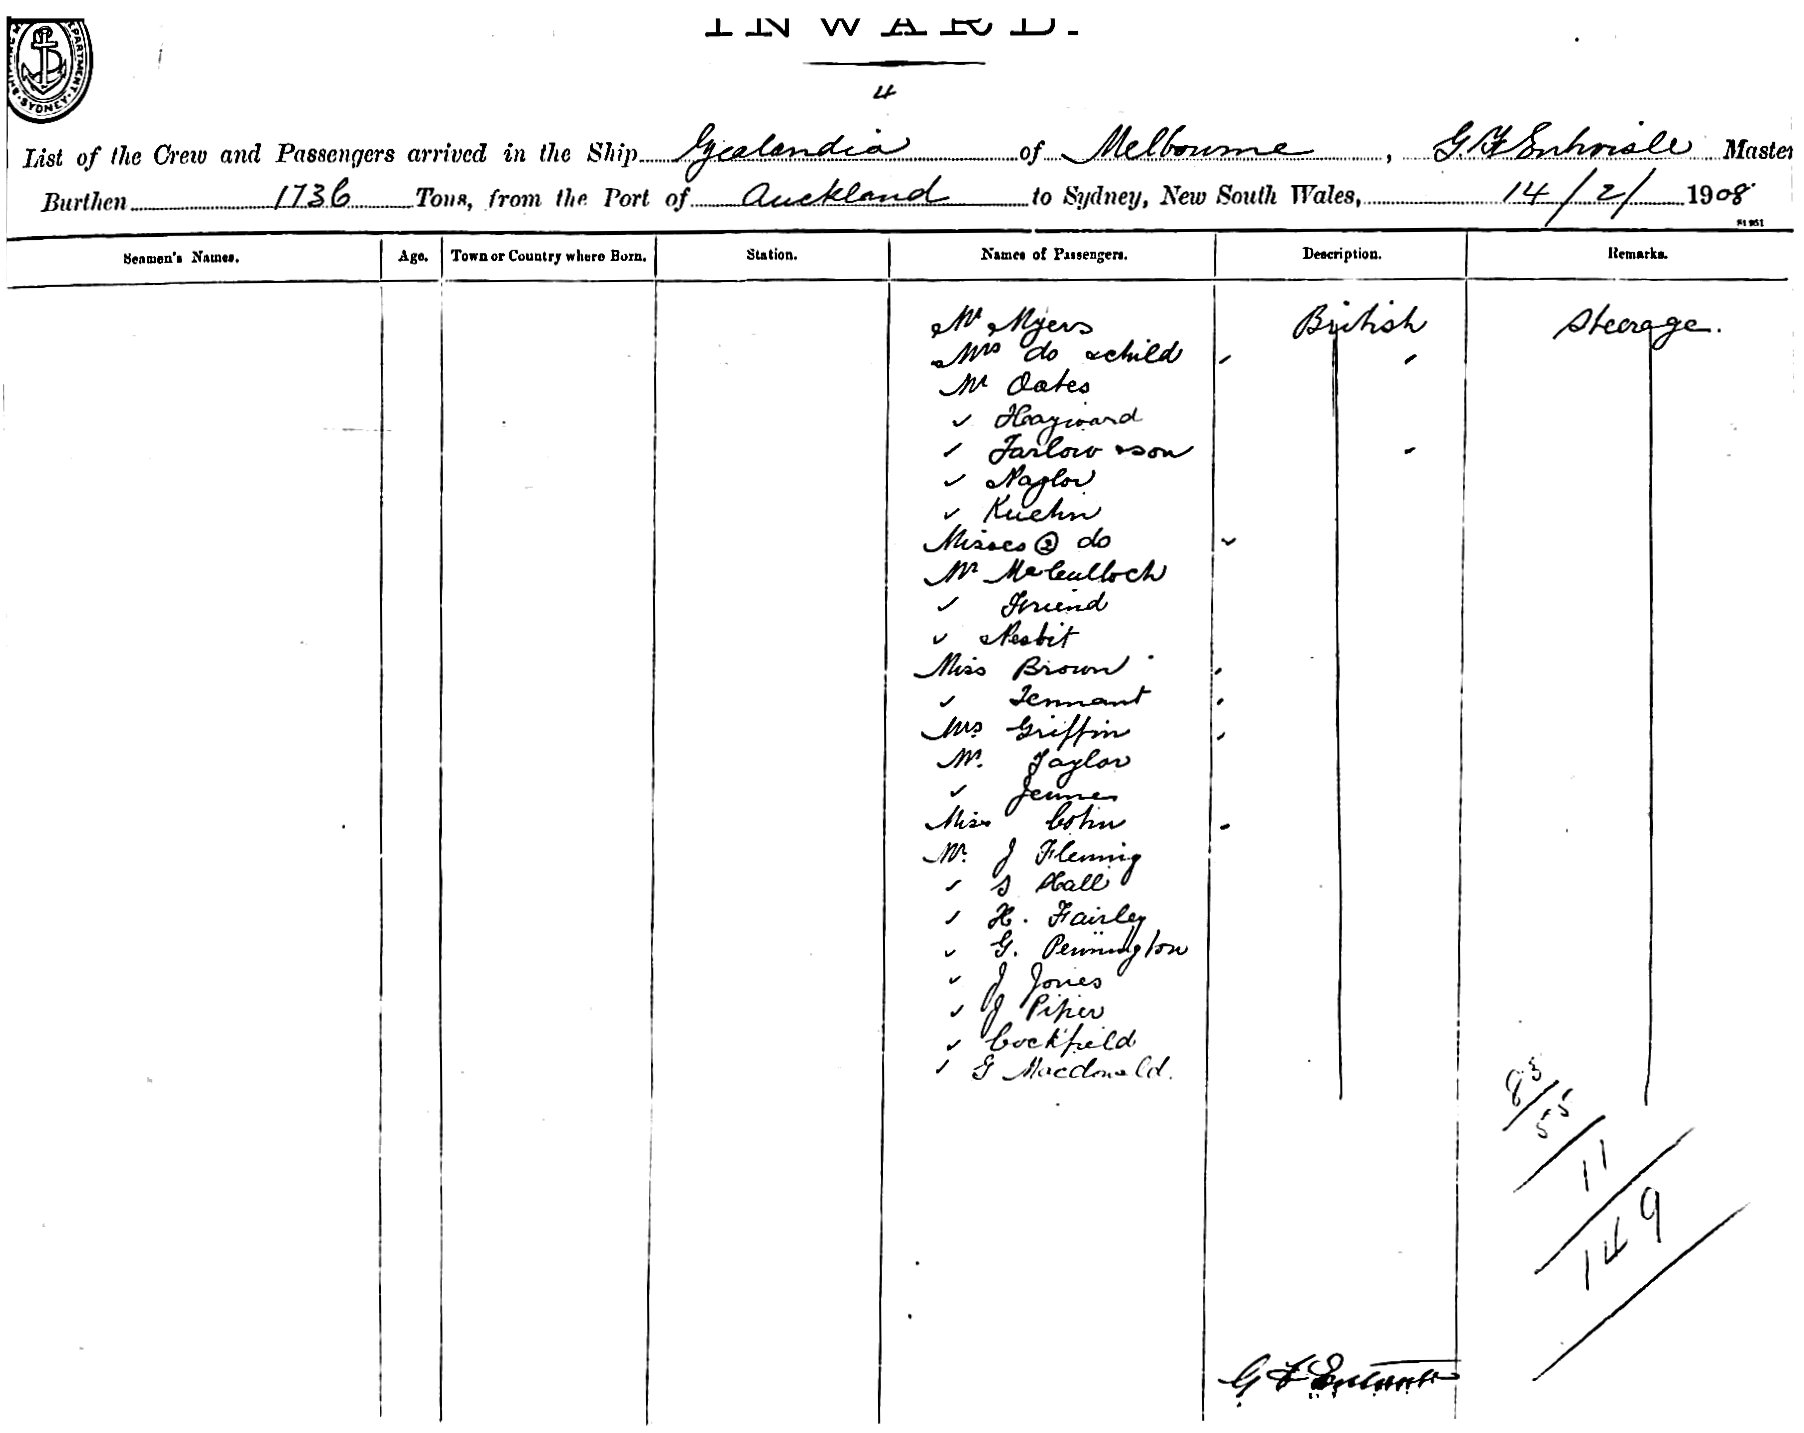 INWARD.
4
List of the Crew and Passengers arrived in the Ship Zealandia of Melbourne, G. F Entwisle Master
Burthen 1736 Tons, from the Port of Auckland to Sydney, New South Wales, 14/2/ 1908
Seamen's Names. Age. Town or Country where Born. Station. Names of Passengers. Description. Remarks.
Mr Myers British Steerage.
Mrs do & child
Mr Oates
Hayward
Farlow & son
Naylor
Kuehn
Misses 2 do
Mr McCulloch
Friend
Nesbit
Miss Brown
Tennant
Mrs Griffin
Mr. Taylor
Miss Cohn
Mr. J Fleming
S Hall
H. Fairley
G. Pennington
J Jones
J Piper
Cockfield
G Macdonald.
83
55
11
149
G F Entwisle